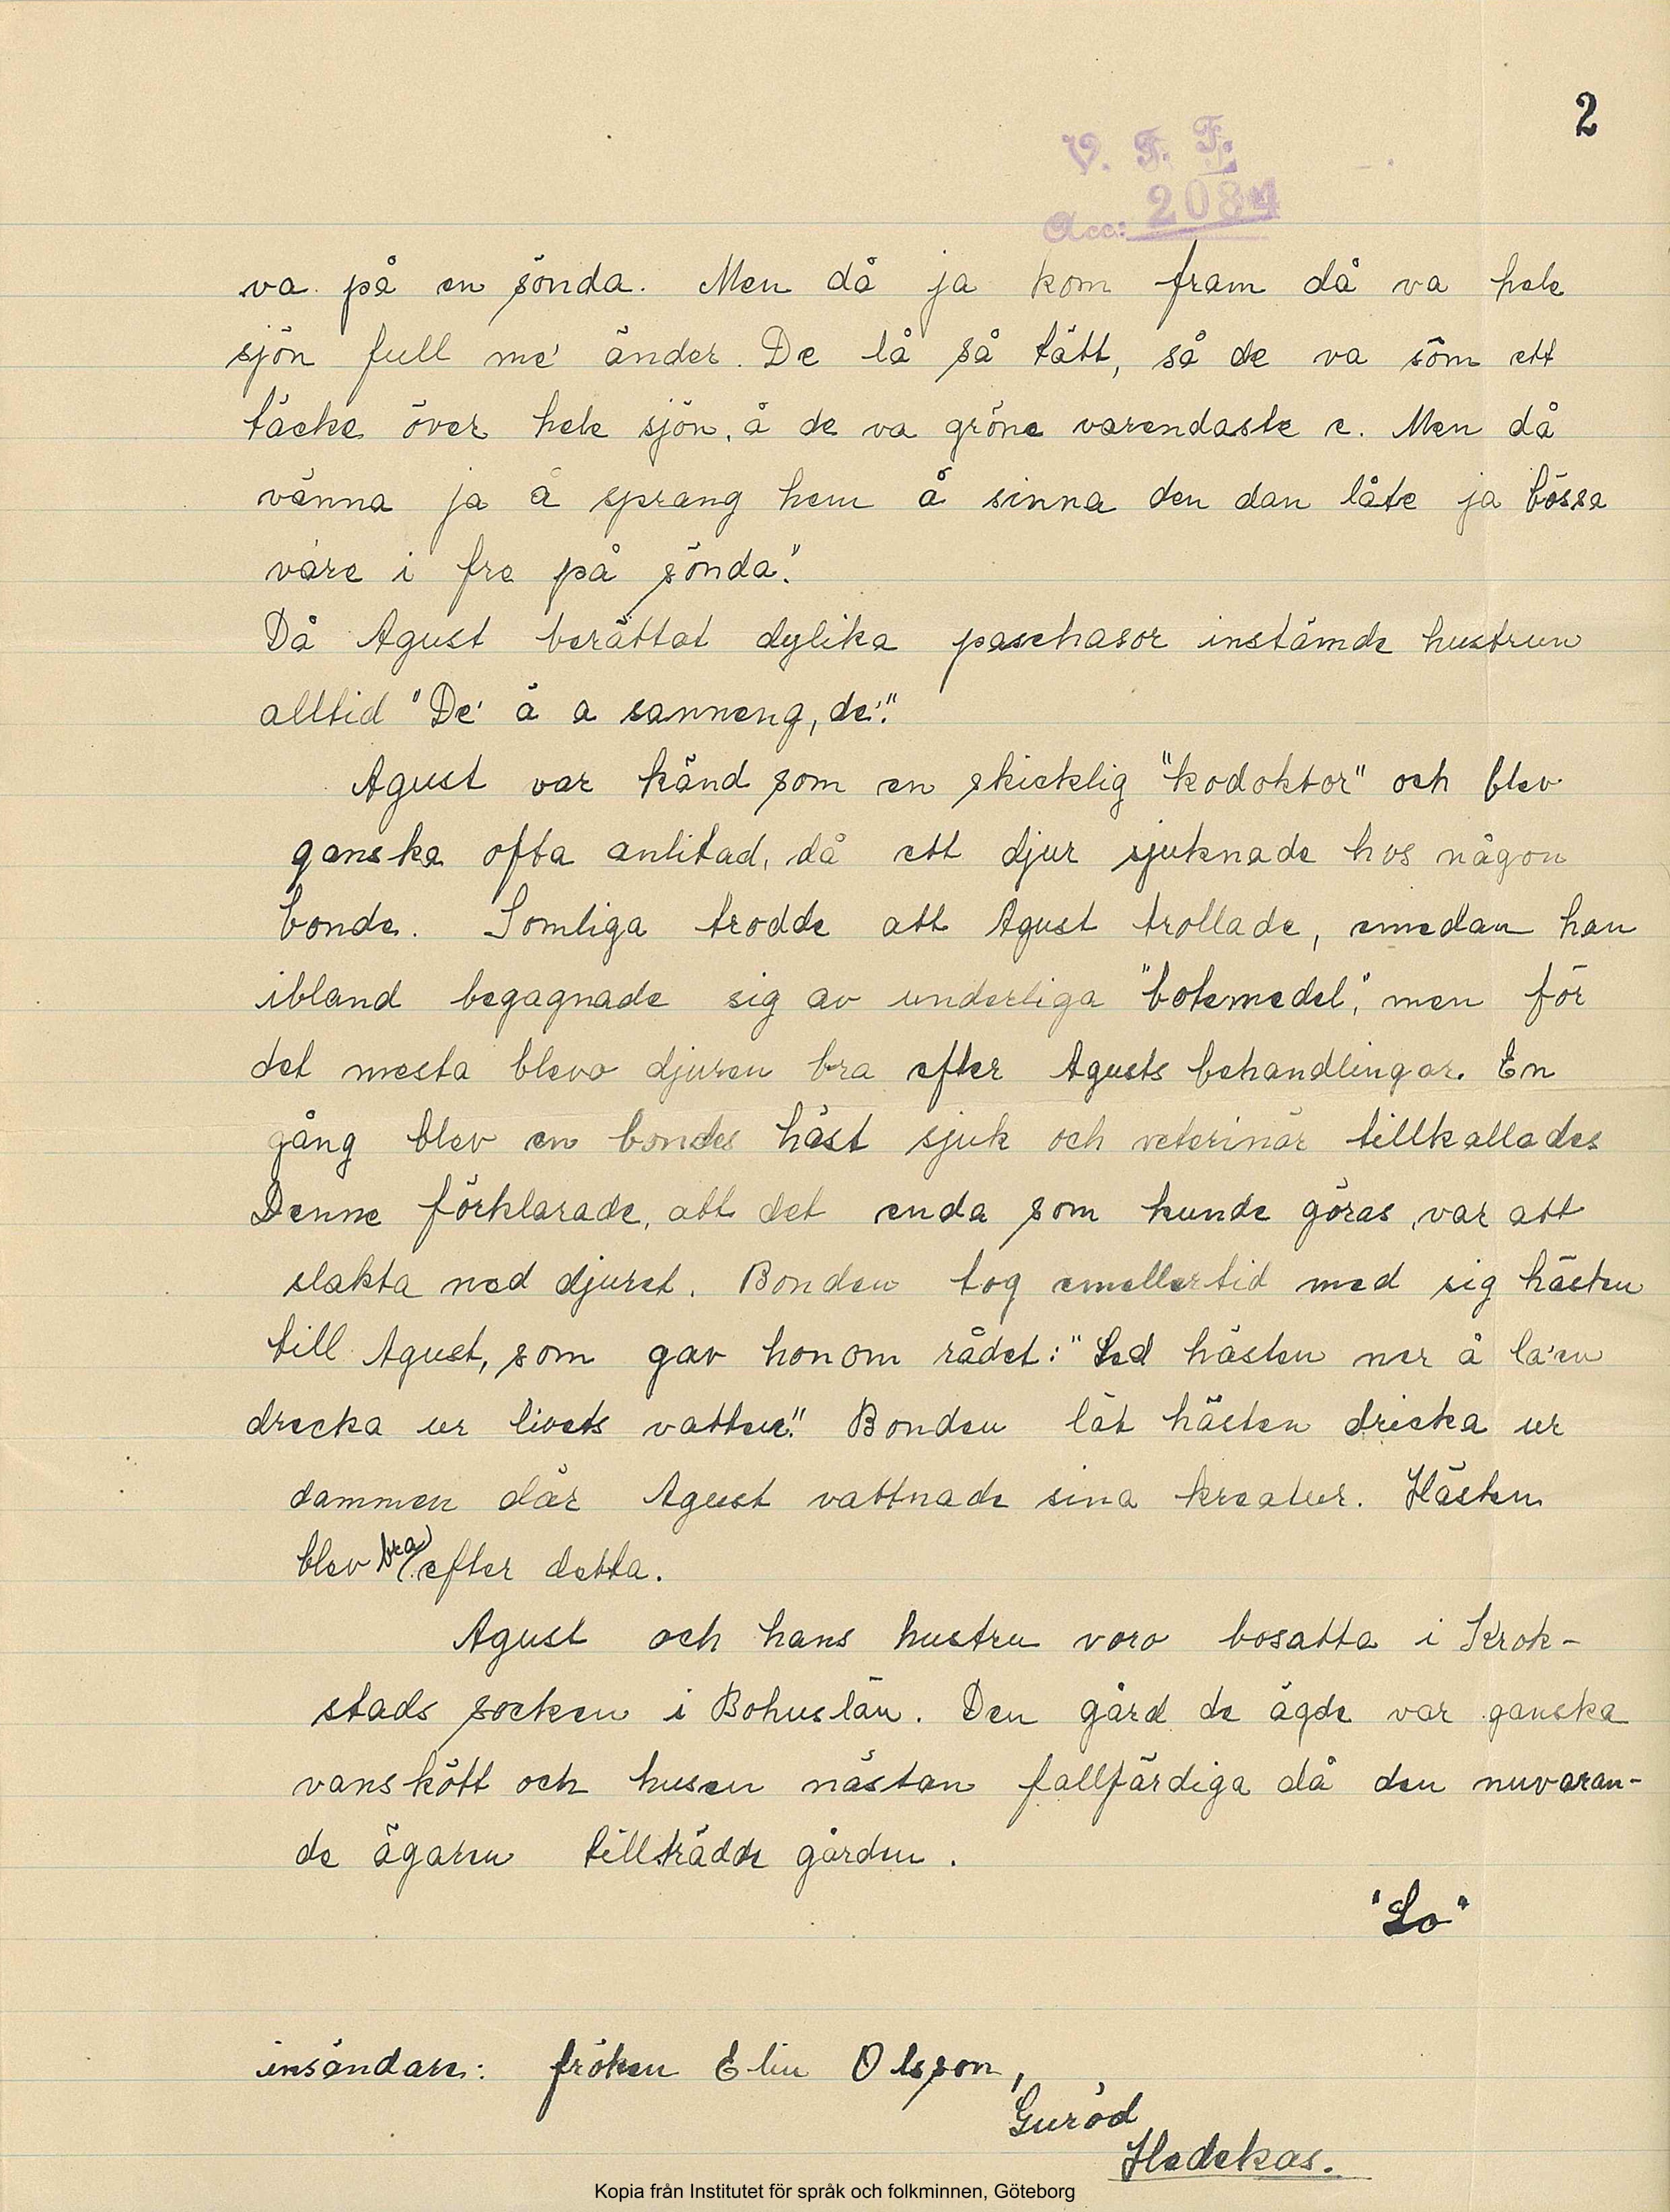 2
V. F. F.
Acc: 2084
va på en sönda. Men då ja kom fram då va hele
sjön full me' änder. De lå så tätt, så de va som ett
täcke över hele sjön, å de va gröne varendaste e. Men då
vänna ja å sprang hem å sinna den dan låte ja bössa
vare i fre på sönda."
Då Agust berättat dylika paschasor instämde hustrun
alltid "De' ä a sanneng, de'."
Agust var känd som en skicklig "kodoktor" och blev
ganska ofta anlitad, då ett djur sjuknade hos någon
bonde. Somliga trodde att Agust trollade, emedan han
ibland begagnade sig av underliga "botemedel", men för
det mesta blevo djuren bra efter Agusts behandlingar. En
gång blev en bondes häst sjuk och veterinär tillkallades
Denne förklarade, att det enda som kunde göras, var att
slakta ned djuret. Bonden tog emellertid med sig hästen
till Agust, som gav honom rådet: "Led hästen ner å la'en
drecka ur livets vatten." Bonden lät hästen dricka ur
dammen där Agust vattnade sina kreatur. Hästen
blev bra efter detta.
Agust och hans hustru voro bosatta i Krok-
stads socken i Bohuslän. Den gård de ägde var ganska
vanskött och husen nästan fallfärdiga då den nuvaran-
de ägaren tillträdde gården.
"Lo"
insändare: fröken Elin Olsson,
Guröd
Hedekas.
Kopia från Institutet för språk och folkminnen, Göteborg